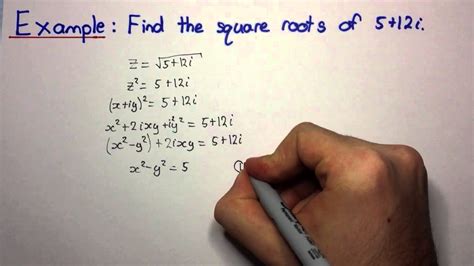 Example: Find the square roots of 5+12i.
z = √5+12i
z² = 5+12i
(x+iy)² = 5+12i
x²+2ixy+i²y² = 5+12i
(x²-y²)+2ixy = 5+12i
x²-y² = 5